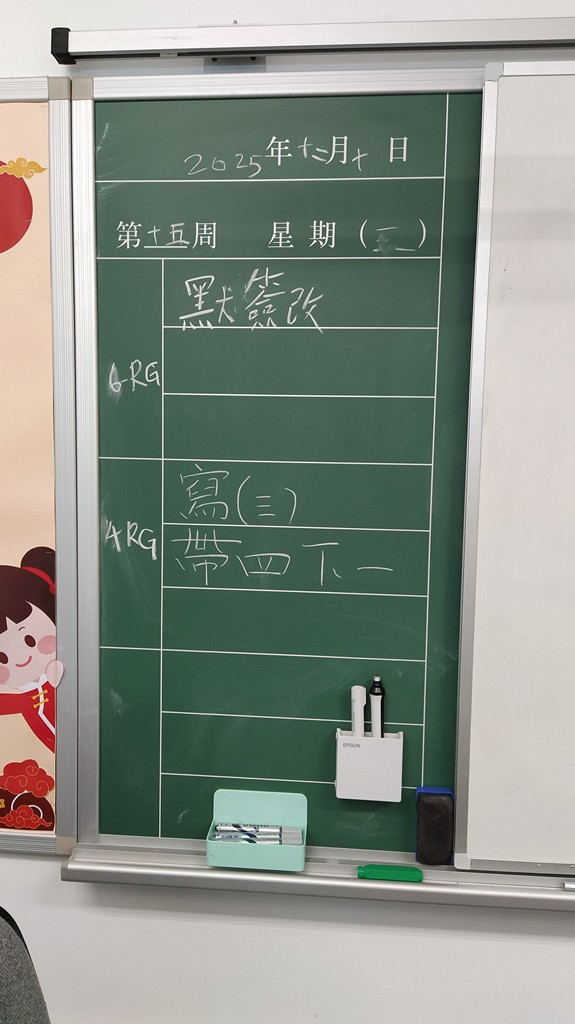 2025年十二月十日
第十五周 星期(三)
6-RG
默簽改
4RG
寫(三)
帶四下一
EPSON